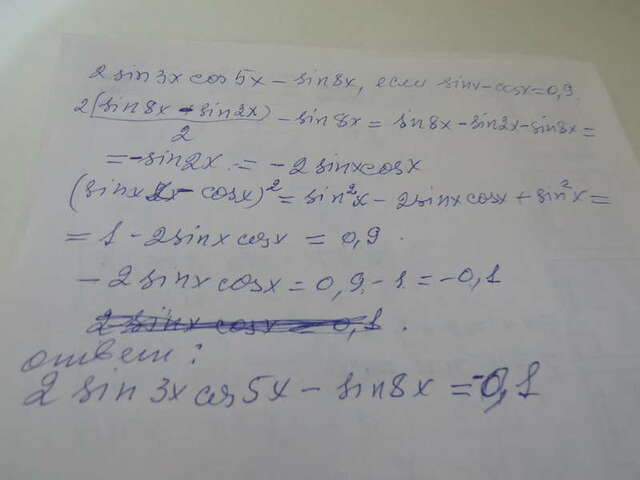 2 sin3x cos5x - sin8x, если sinx-cosx=0,9.
2(sin8x - sin2x)/2 - sin8x = sin8x - sin2x - sin8x =
= -sin2x. = -2 sinxcosx
(sinx - cosx)² = sin²x - 2sinxcosx + sin²x =
= 1 - 2sinxcosx = 0,9.
-2sinxcosx = 0,9 - 1 = -0,1
2 sinx cosx = 0,1.
ответ:
2 sin3x cos5x - sin8x = -0,1